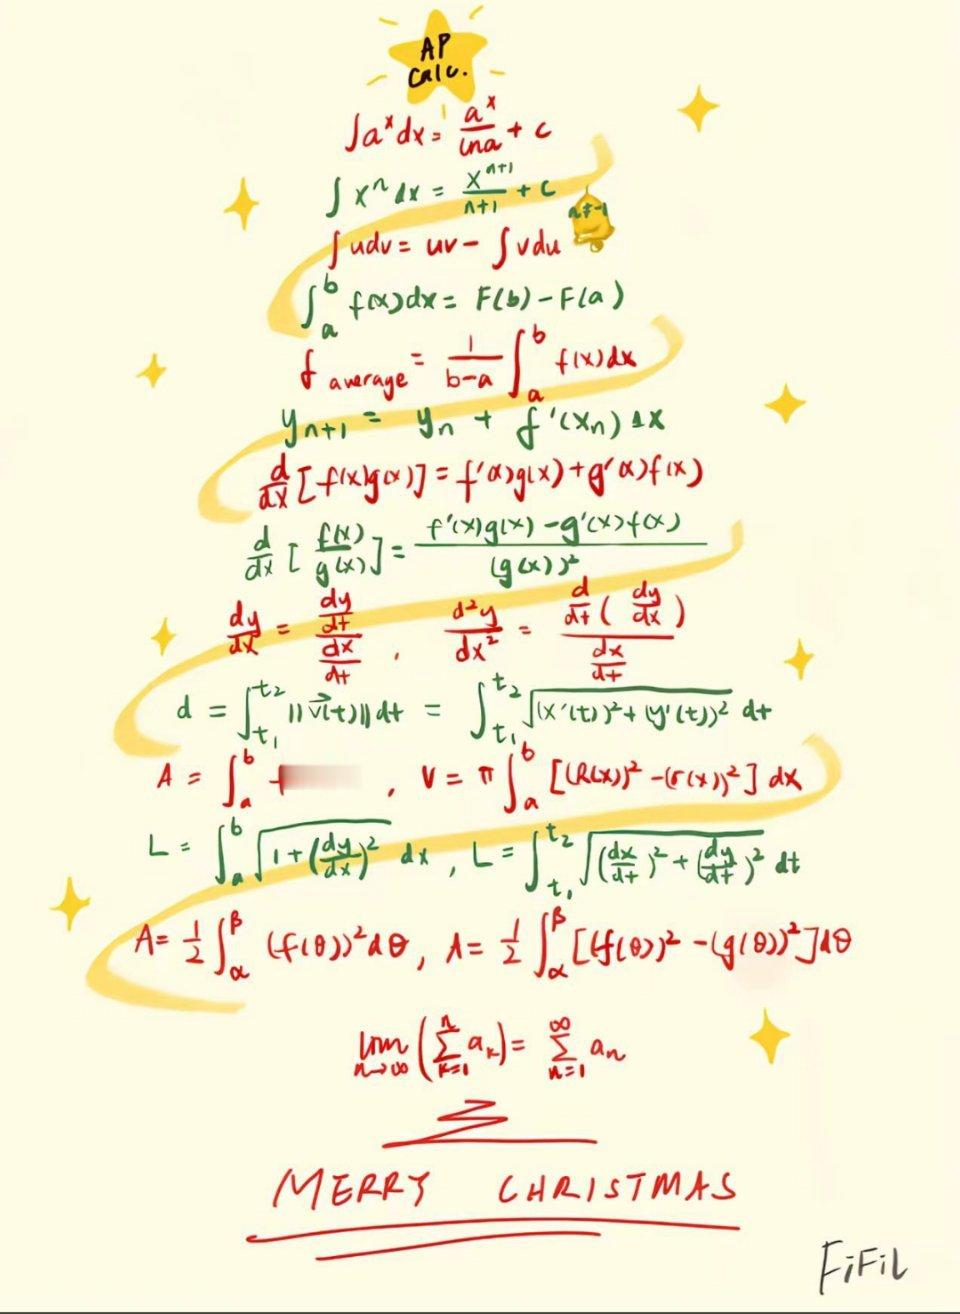 AP
Calc.
∫aˣdx = aˣ/lna + c
∫xⁿdx = xⁿ⁺¹/n+1 + c n≠-1
∫udv = uv - ∫vdu
∫ₐᵇ f(x)dx = F(b) - F(a)
f average = 1/b-a ∫ₐᵇ f(x)dx
yₙ₊₁ = yₙ + f'(xₙ) Δx
d/dx [f(x)g(x)] = f'(x)g(x) + g'(x)f(x)
d/dx [f(x)/g(x)] = f'(x)g(x) - g'(x)f(x) / (g(x))²
dy/dx = dy/dt / dx/dt , d²y/dx² = d/dt (dy/dx) / dx/dt
d = ∫ₜ₁ᵗ² ||v⃗(t)||dt = ∫ₜ₁ᵗ² √(x'(t))²+(y'(t))² dt
A = ∫ₐᵇ , V = π∫ₐᵇ [(R(x))² - (r(x))²] dx
L = ∫ₐᵇ √1+(dy/dx)² dx , L = ∫ₜ₁ᵗ² √(dx/dt)² + (dy/dt)² dt
A = 1/2 ∫αᵝ (f(θ))²dθ, A = 1/2 ∫αᵝ [(f(θ))² - (g(θ))²]dθ
lim n→∞ (∑ₖ₌₁ⁿ aₖ) = ∑ₙ₌₁^∞ aₙ
MERRY CHRISTMAS
FiFiL